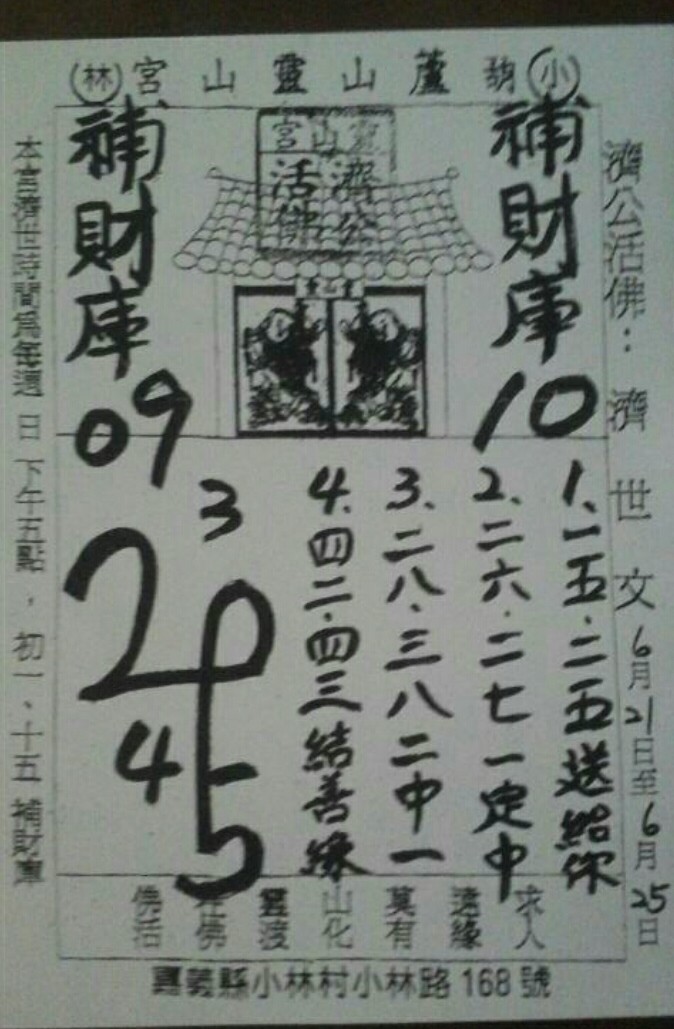 小葫蘆山靈山宮林
靈山宮
濟公
活佛
靈山宮
補財庫
10
補財庫
09
濟公活佛：濟世文6月21日至6月25日
1、一五．二五送給你
2、二六．二七一定中
3、二八．三八二中一
4、四二．四三結善緣
3
4
本宮濟世時間為每週日下午五點，初一、十五補財庫
求人
遠緣
莫有
山化
靈渡
佛
佛活
嘉義縣小林村小林路168號